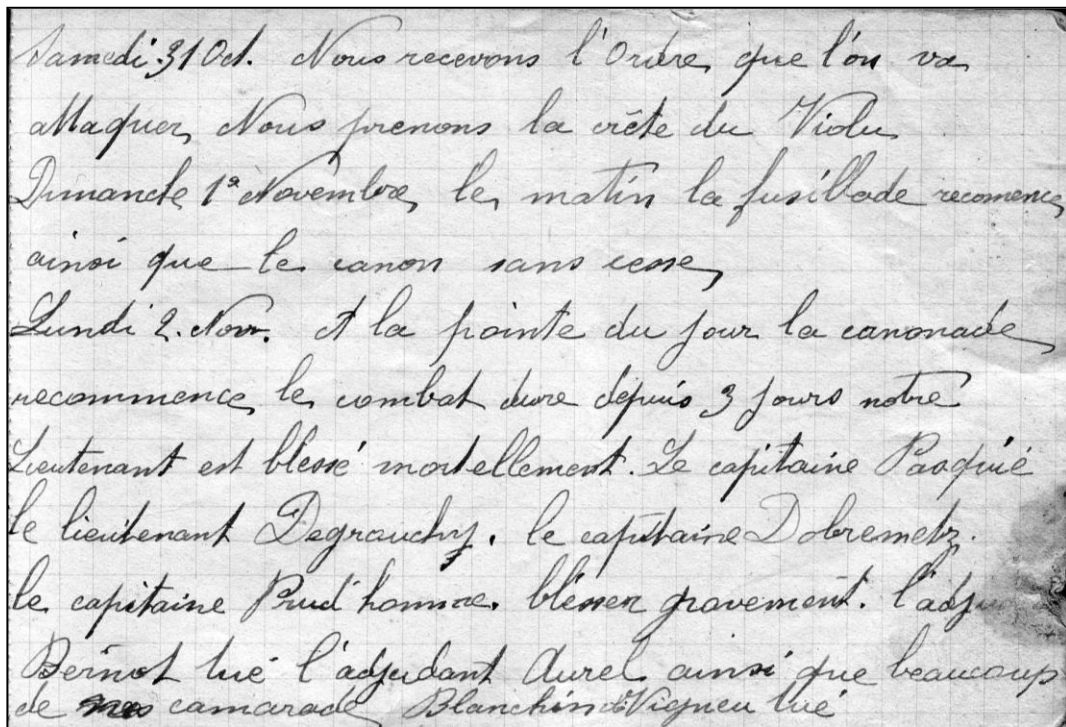 Samedi 31 Oct. Nous recevons l'Ordre que l'on va
attaquer Nous prenons la crête du Violu
Dimanche 1er Novembre le matin la fusillade recomence
ainsi que le canon sans cesse
Lundi 2. Novr. A la pointe du jour la canonade
recommence le combat dure depuis 3 jours notre
Lieutenant est blessé mortellement. Le capitaine Pasquié
le lieutenant Degrouchy. le capitaine Dobremetz.
le capitaine Prud'homme. blesser gravement. l'adju
Bernot tué l'adjudant Aurel ainsi que beaucoup
de mes camarade Blanchin et Vigneu tué